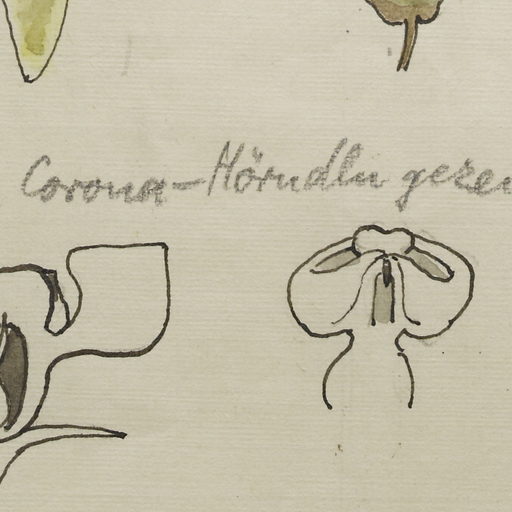 Corona-Hörndln gezei